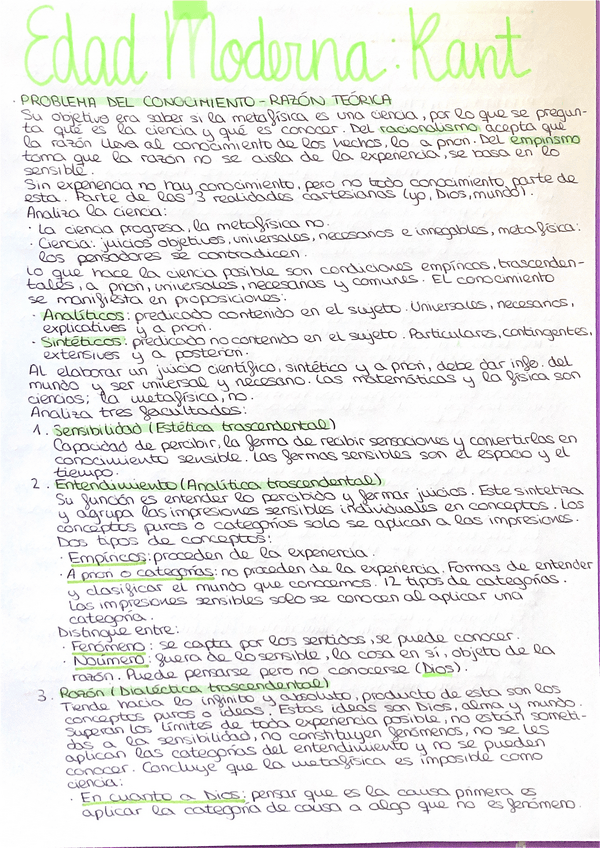 Edad Moderna: Kant
· PROBLEMA DEL CONOCIMIENTO - RAZÓN TEÓRICA
Su objetivo era saber si la metafísica es una ciencia, por lo que se pregun-
ta qué es la ciencia y qué es conocer. Del racionalismo acepta que
la razón lleva al conocimiento de los hechos, lo a priori. Del empirismo
toma que la razón no se aisla de la experiencia, se basa en lo
sensible.
Sin experiencia no hay conocimiento, pero no todo conocimiento parte de
esta. Parte de las 3 realidades cartesianas (yo, Dios, mundo).
Analiza la ciencia:
· La ciencia progresa, la metafísica no.
· Ciencia: juicios objetivos, universales, necesarios e innegables, metafísica:
los pensadores se contradicen.
Lo que hace la ciencia posible son condiciones empíricas, trascenden-
tales, a priori, universales, necesarias y comunes. El conocimiento
se manifiesta en proposiciones:
· Analíticos: predicado contenido en el sujeto. Universales, necesarios,
explicativos y a priori.
· Sintéticos: predicado no contenido en el sujeto. Particulares, contingentes,
extensivos y a posteriori.
Al elaborar un juicio científico, sintético y a priori, debe dar info. del
mundo y ser universal y necesario. Las matemáticas y la física son
ciencias; la metafísica, no.
Analiza tres facultades:
1. Sensibilidad (Estética trascendental)
Capacidad de percibir, la forma de recibir sensaciones y convertirlas en
conocimiento sensible. Las formas sensibles son el espacio y el
tiempo.
2. Entendimiento (Analítica trascendental)
Su función es entender lo percibido y formar juicios. Este sintetiza
y agrupa las impresiones sensibles individuales en conceptos. Los
conceptos puros o categorías solo se aplican a las impresiones.
Dos tipos de conceptos:
· Empíricos: proceden de la experiencia.
· A priori o categorías: no proceden de la experiencia. Formas de entender
y clasificar el mundo que conocemos. 12 tipos de categorías.
Las impresiones sensibles solo se conocen al aplicar una
categoría.
Distingue entre:
· Fenómeno: se capta por los sentidos, se puede conocer.
· Noúmeno: fuera de lo sensible, la cosa en sí, objeto de la
razón. Puede pensarse pero no conocerse (Dios).
3. Razón (Dialéctica trascendental)
Tiende hacia lo infinito y absoluto, producto de esta son los
conceptos puros o ideas. Estas ideas son Dios, alma y mundo.
Superan los límites de toda experiencia posible, no están someti-
das a la sensibilidad, no constituyen fenómenos, no se les
aplican las categorías del entendimiento y no se pueden
conocer. Concluye que la metafísica es imposible como
ciencia:
· En cuanto a Dios: pensar que es la causa primera es
aplicar la categoría de causa a algo que no es fenómeno.